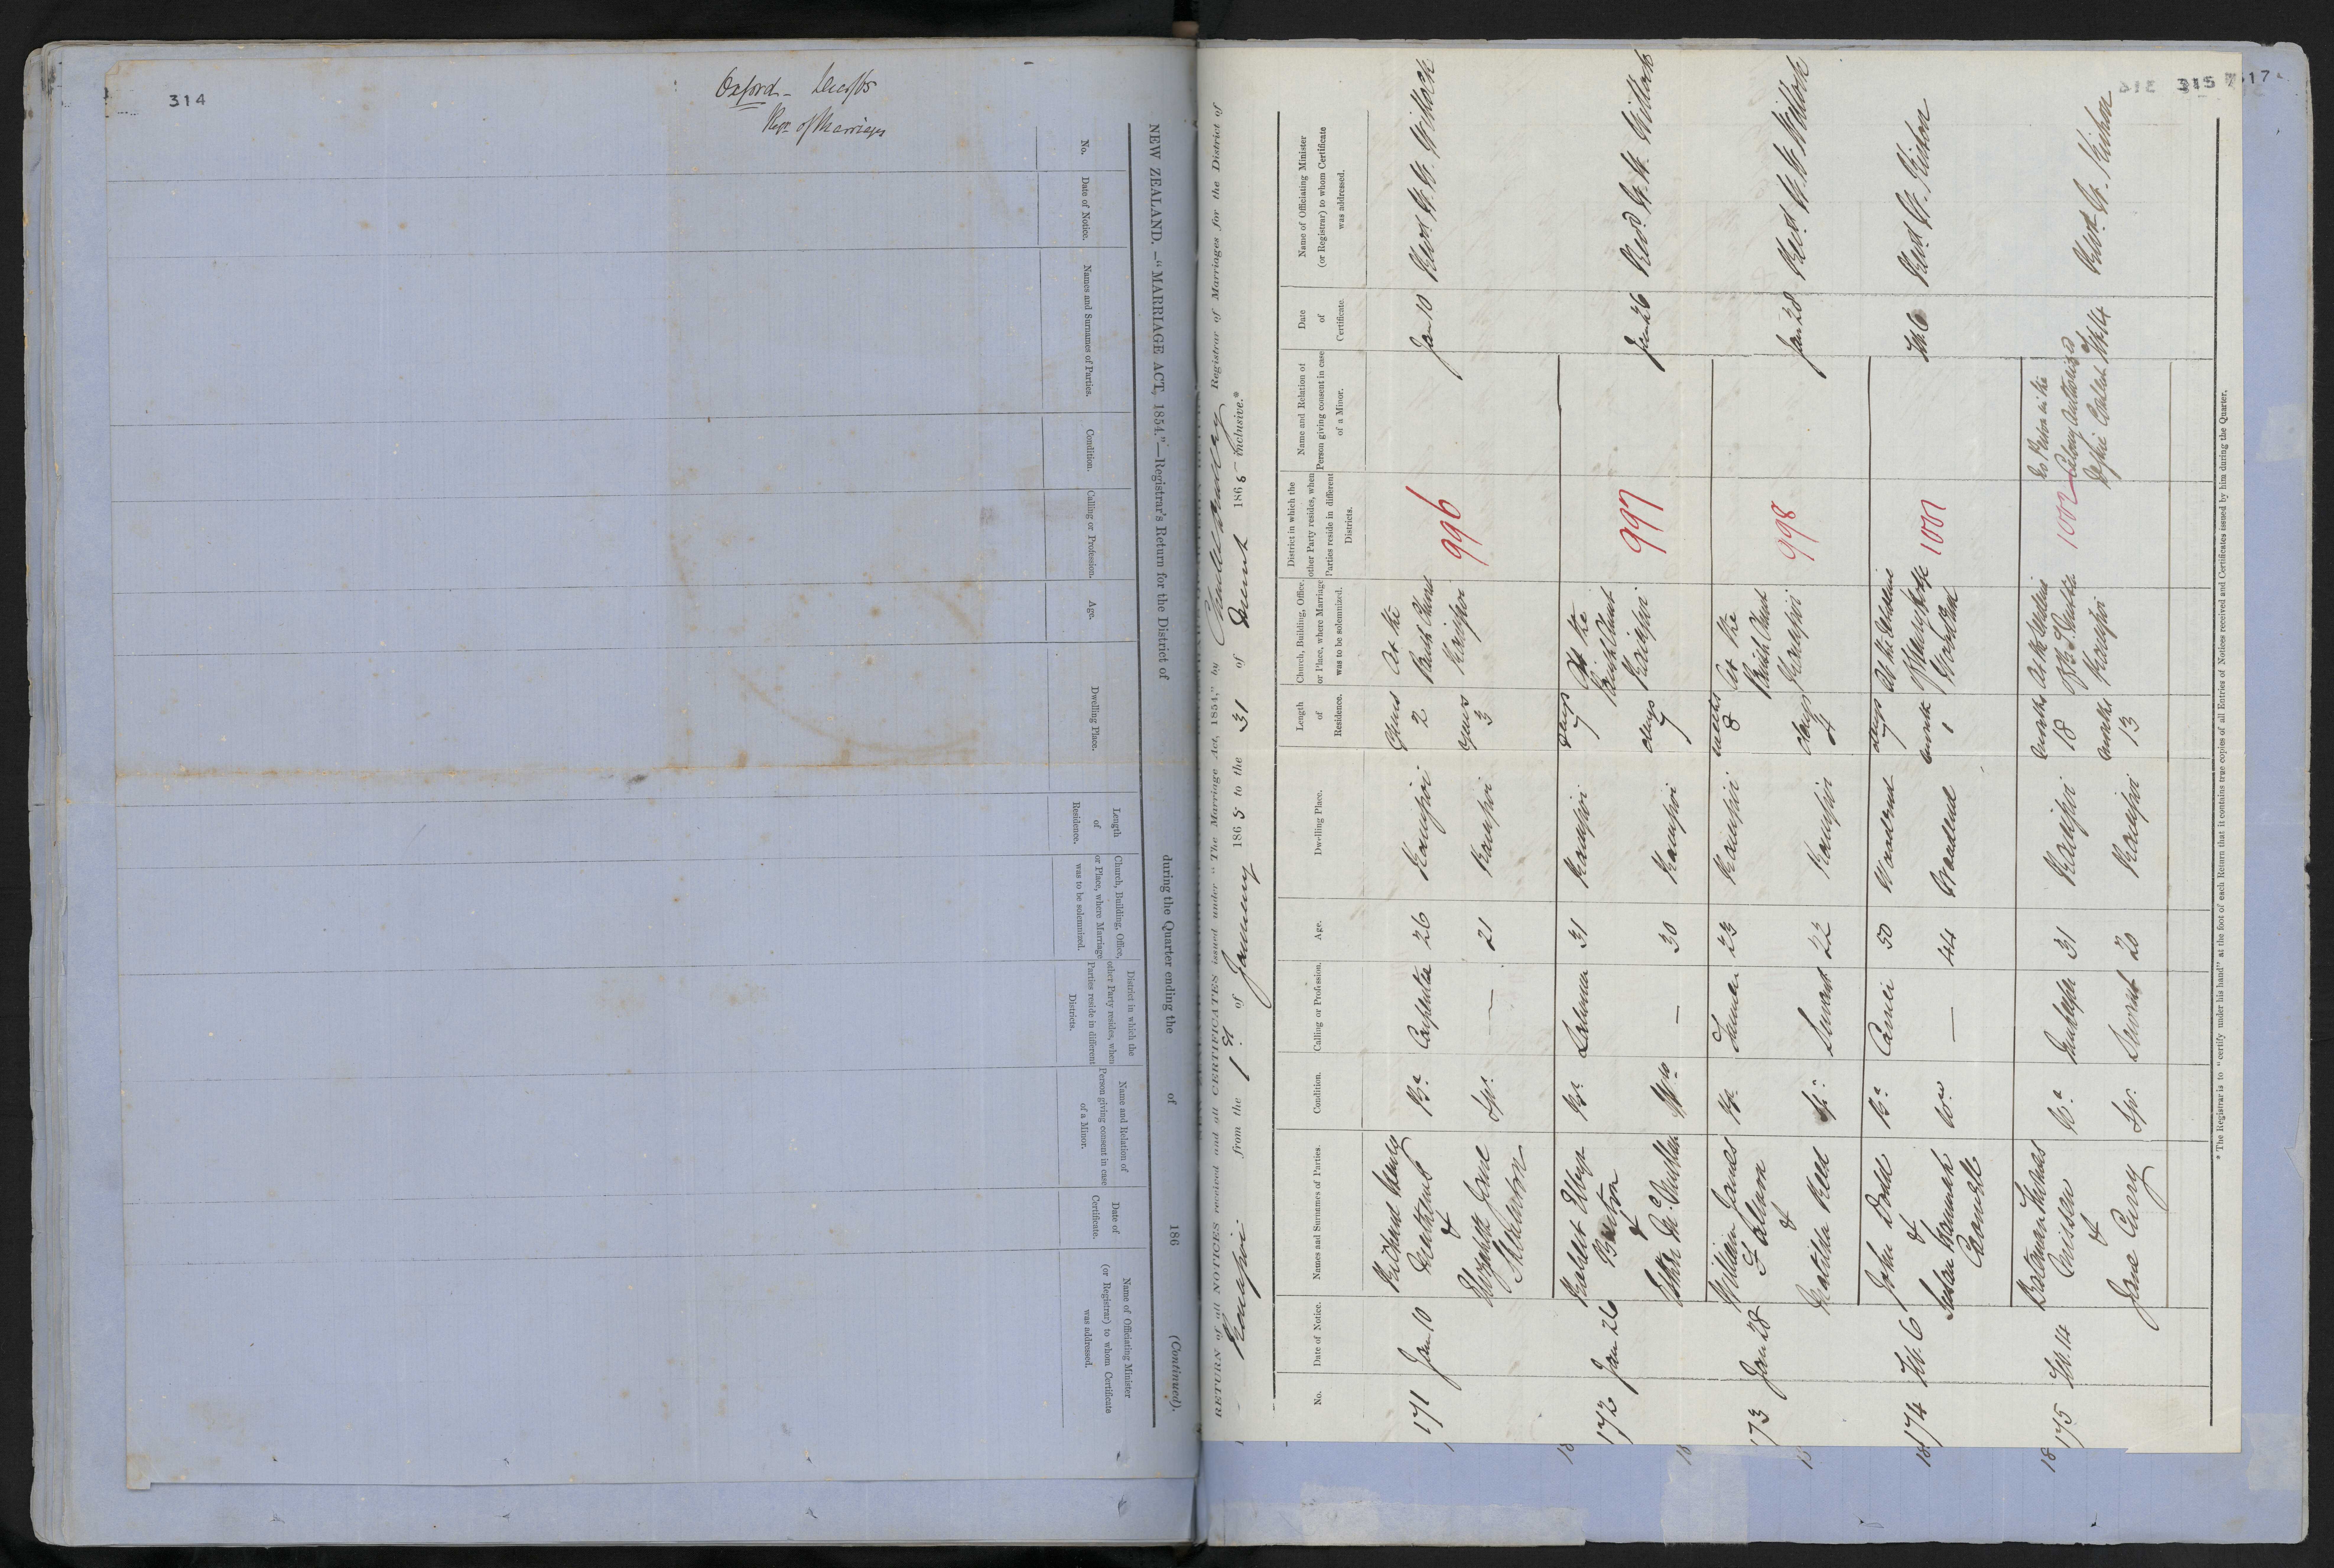 314
Oxford - Decr/65
Regr. of Marriages
NEW ZEALAND.—"MARRIAGE ACT, 1854."—Registrar's Return for the District of during the Quarter ending the of 186 (Continued).
No.
Date of Notice.
Names and Surnames of Parties.
Condition.
Calling or Profession.
Age.
Dwelling Place.
Length of Residence.
Church, Building, Office, or Place, where Marriage was to be solemnized.
District in which the other Party resides, when Parties reside in different Districts.
Name and Relation of Person giving consent in case of a Minor.
Date of Certificate.
Name of Officiating Minister (or Registrar) to whom Certificate was addressed.
315
RETURN of all NOTICES received and all CERTIFICATES issued under "The Marriage Act, 1854," by Registrar of Marriages for the District of
Kaiapoi from the 1st of January 1865 to the 31 of 1865 inclusive.*
No.
Date of Notice.
Names and Surnames of Parties.
Condition.
Calling or Profession.
Age.
Dwelling Place.
Length of Residence.
Church, Building, Office, or Place, where Marriage was to be solemnized.
District in which the other Party resides, when Parties reside in different Districts.
Name and Relation of Person giving consent in case of a Minor.
Date of Certificate.
Name of Officiating Minister (or Registrar) to whom Certificate was addressed.
171 Jan 10 Richard Henry
&
Elizabeth Jane
Br. Carpenter 26 Kaiapoi years 2
Sp. — 21 Kaiapoi years 3
At the Parish Church Kaiapoi
996
Jan 10 Revd. W. W. Willock
172 Jan 26 Robert
&
Esther McMullan
Br. Labourer 31 Kaiapoi days 7
Wo. — 30 Kaiapoi days 7
At the Parish Church Kaiapoi
997
Jan 26 Revd. W. W. Willock
173 Jan 28 William James
&
Matilda Reed
Br. Farmer 23 Kaiapoi weeks 8
Sp. Servant 22 Kaiapoi days 4
At the Parish Church Kaiapoi
998
Jan 28 Revd. W. W. Willock
174 Feb. 6 John Dodd
&
Susan Hannah
Br. Carrier 50 Woodend days 7
Wo. — 44 Woodend month 1
At the Woodend
1001
Feb 6 Revd. W. Kirton
175 Feb. 14 Bateman Thomas
&
Jane Curry
Br. 31 Kaiapoi months 18
Sp. Servant 20 Kaiapoi months 13
At the Kaiapoi
1002
No Person in the Colony authorised
Feb 14 Revd. W. Kirton
* The Registrar is to "certify under his hand" at the foot of each Return that it contains true copies of all Entries of Notices received and Certificates issued by him during the Quarter.